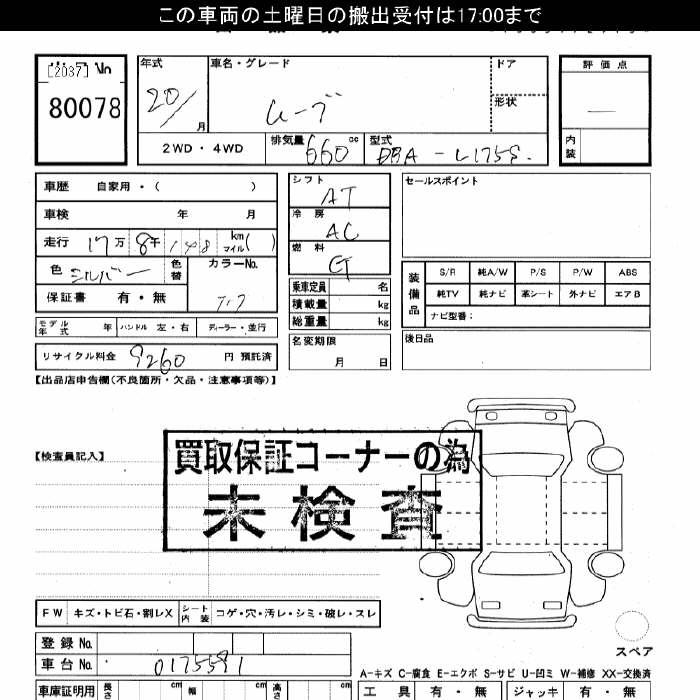 この車両の土曜日の搬出受付は17:00まで
[2037] No
80078
年式
20/
月
車名・グレード
ムーブ
ドア
形状
2WD・4WD
排気量 660 cc
型式 DBA-L175S.
評価点
内装
車歴 自家用・( )
車検 年 月
走行 17万 8千 148 km マイル( )
色 シルバー 色替
カラーNo.
T17
保証書 有・無
モデル年式 年 ハンドル 左・右 ディーラー・並行
リサイクル料金 9260 円 預託済
シフト AT
冷房 AC
燃料
乗車定員 名
積載量 kg
総重量 kg
名変期限
月 日
セールスポイント
装備品
S/R 純A/W P/S P/W ABS
純TV 純ナビ 革シート 外ナビ エアB
ナビ型番:
後日品
【出品店申告欄(不良箇所・欠品・注意事項等)】
【検査員記入】
買取保証コーナーの為
未検査
FW キズ・トビ石・割レX シート内装 コゲ・穴・汚レ・シミ・破レ・スレ
登録 No.
車台 No. 0175591
スペア
A-キズ C-腐食 E-エクボ S-サビ U-凹ミ W-補修 XX-交換済
車庫証明用 長さ cm 幅 cm 高さ cm
工具 有・無 ジャッキ 有・無